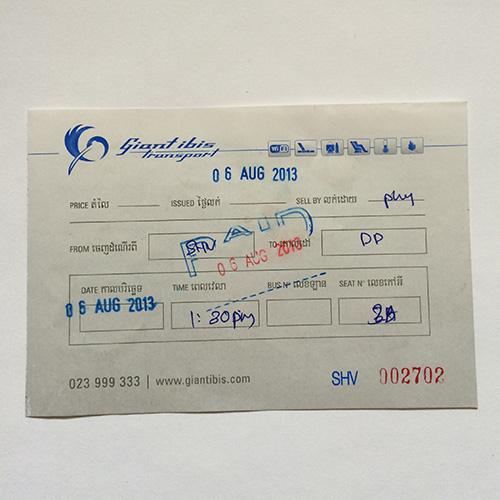 Giant ibis
transport
Wi Fi
06 AUG 2013
PRICE តំលៃ ISSUED ថ្ងៃលក់ SELL BY លក់ដោយ phy
FROM ចេញដំណើរពី SHV TO ទៅកាន់ DP
PAID
06 AUG 2013
DATE កាលបរិច្ឆេទ TIME ពេលវេលា BUS Nº លេខឡាន SEAT Nº លេខកៅអី
06 AUG 2013 1:30pm 3A
023 999 333 | www.giantibis.com SHV 002702